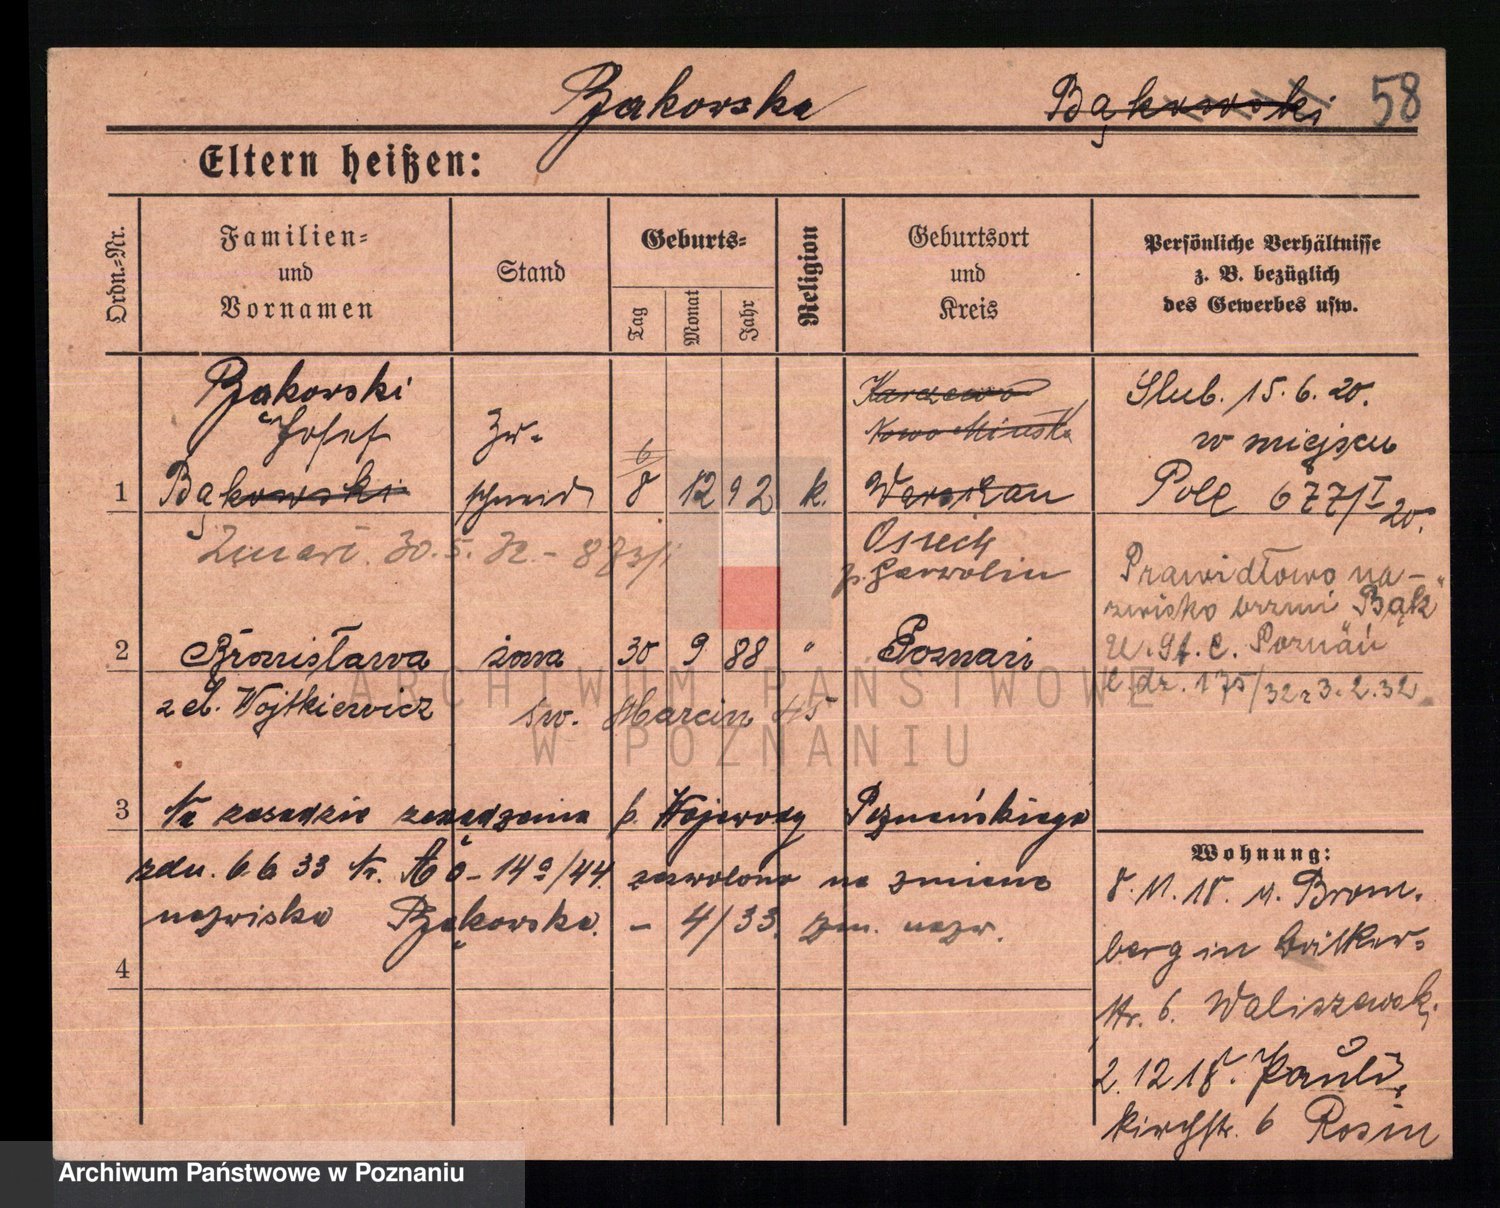 Bąkowska Bąkowski 58
Eltern heißen:
Ordn.=Nr.
Familien=
und
Vornamen
Stand
Geburts=
Tag
Monat
Jahr
Religion
Geburtsort
und
Kreis
Persönliche Verhältnisse
z. B. bezüglich
des Gewerbes usw.
Josef
1 Bąkowski
schneid 6 8 12 92 k.
Karczewo
Nowo Minsk
Warschau
Osieck
p. Garwolin
Zmarł. 30. 5. 32. –
Ślub. 15. 6. 20.
w miejscu
Pole 677/I 20.
Prawidłowo na–
zwisko brzmi "Bąk"
U. St. C. Poznań
L. dz. 175/32 z 3. 2. 32.
2 Bronisława żona 30 9 88 " Poznań
z d. Wojtkiewicz św. Marcin 45
3 Na zasadzie zarządzenia p. Wojewody Poznańskiego
z dn. 6 6 33 Nr. zezwolono na zmianę
nazwiska – 4/33. zm. nazw.
4
Wohnung:
8. 11. 18. v. Brom.
berg in
str. 6. Waliszewski
2. 12 18. Pauli.
kirchstr. 6 Rosin
ARCHIWUM PAŃSTWOWE
W POZNANIU
Archiwum Państwowe w Poznaniu